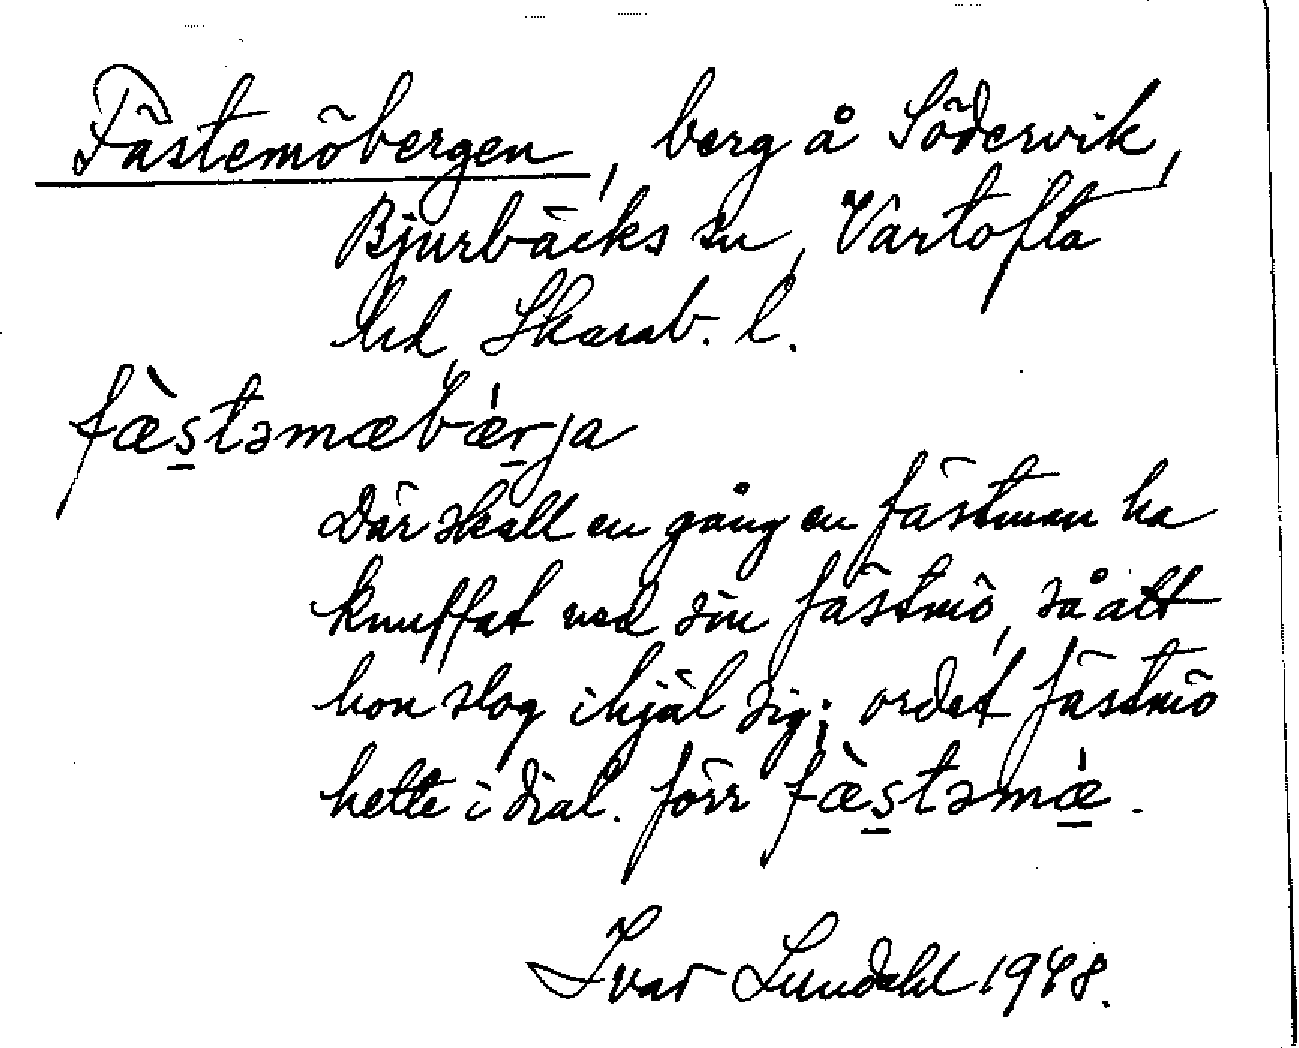 Fästemöbergen, berg å Södervik,
Bjurbäcks sn, Vartofta
hd, Skarab. l.
fæ̀s̱təmæbǽṟja
Där skall en gång en fästman ha
knuffat ned sin fästmö, så att
hon slog ihjäl sig; ordet fästmö
hette i dial. förr fæ̀s̱təmǽ̱.
Ivar Lundahl 1948.